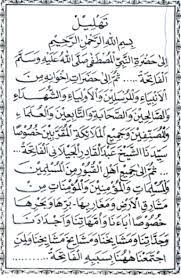 تَهْلِيْل
بِسْمِ اللهِ الرَّحْمٰنِ الرَّحِيْمِ
اِلَى حَضْرَةِ النَّبِيِّ الْمُصْطَفَى صَلَّى اللهُ عَلَيْهِ وَسَلَّمَ
اَلْفَاتِحَةَ ... ثُمَّ اِلَى حَضَرَاتِ اِخْوَانِهِ مِنَ
الْاَنْبِيَاءِ وَالْمُرْسَلِيْنَ وَالْاَوْلِيَاءِ وَالشُّهَدَاءِ
وَالصَّالِحِيْنَ وَالصَّحَابَةِ وَالتَّابِعِيْنَ وَالْعُلَمَاءِ
وَالْمُصَنِّفِيْنَ وَجَمِيْعِ الْمَلَائِكَةِ الْمُقَرَّبِيْنَ خُصُوْصًا
سَيِّدَنَا الشَّيْخَ عَبْدَ الْقَادِرِ الْجَيْلَانِي اَلْفَاتِحَةَ ...
ثُمَّ اِلَى جَمِيْعِ اَهْلِ الْقُبُوْرِ مِنَ الْمُسْلِمِيْنَ
وَالْمُسْلِمَاتِ وَالْمُؤْمِنِيْنَ وَالْمُؤْمِنَاتِ مِنْ
مَشَارِقِ الْاَرْضِ وَمَغَارِبِهَا بَرِّهَا وَبَحْرِهَا
خُصُوْصًا اٰبَاءَنَا وَاُمَّهَاتِنَا وَاَجْدَادَنَا
وَجَدَّاتِنَا وَمَشَايِخَنَا وَمَشَايِخَ مَشَايِخِنَا وَلِمَنِ
اجْتَمَعْنَا هٰهُنَا بِسَبَبِهِ اَلْفَاتِحَةَ ...